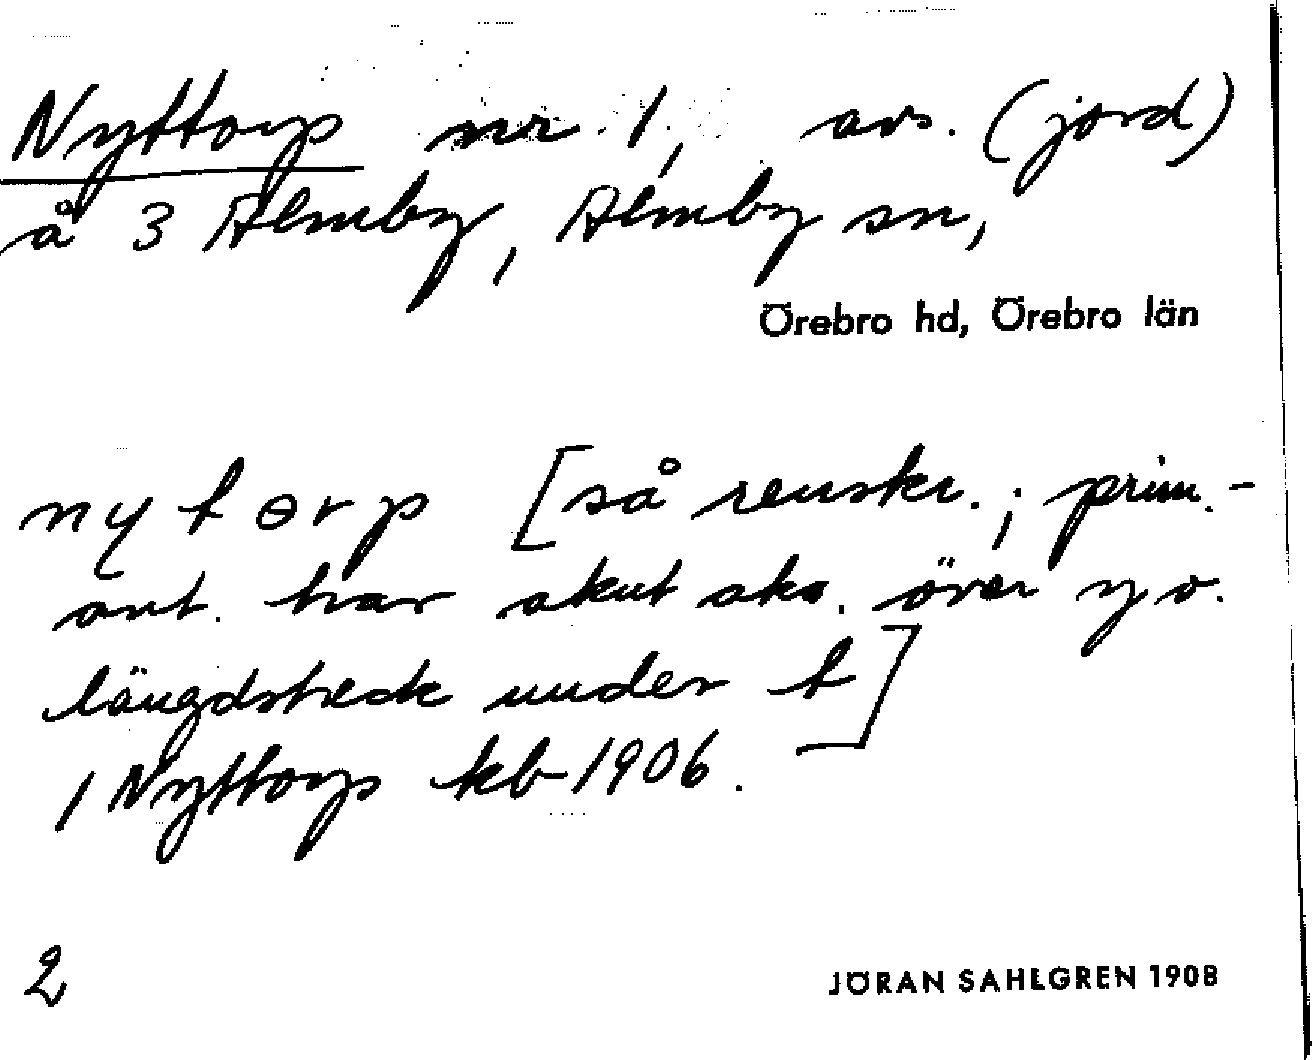 Nyttorp nr 1, avs. (jord)
å 3 Almby, Almby sn,
Örebro hd, Örebro län
nytorp [så renskr.; prim.-
ant. har akut aks. över y o.
längdstreck under t]
1 Nyttorp kb 1906.
2
JÖRAN SAHLGREN 1908